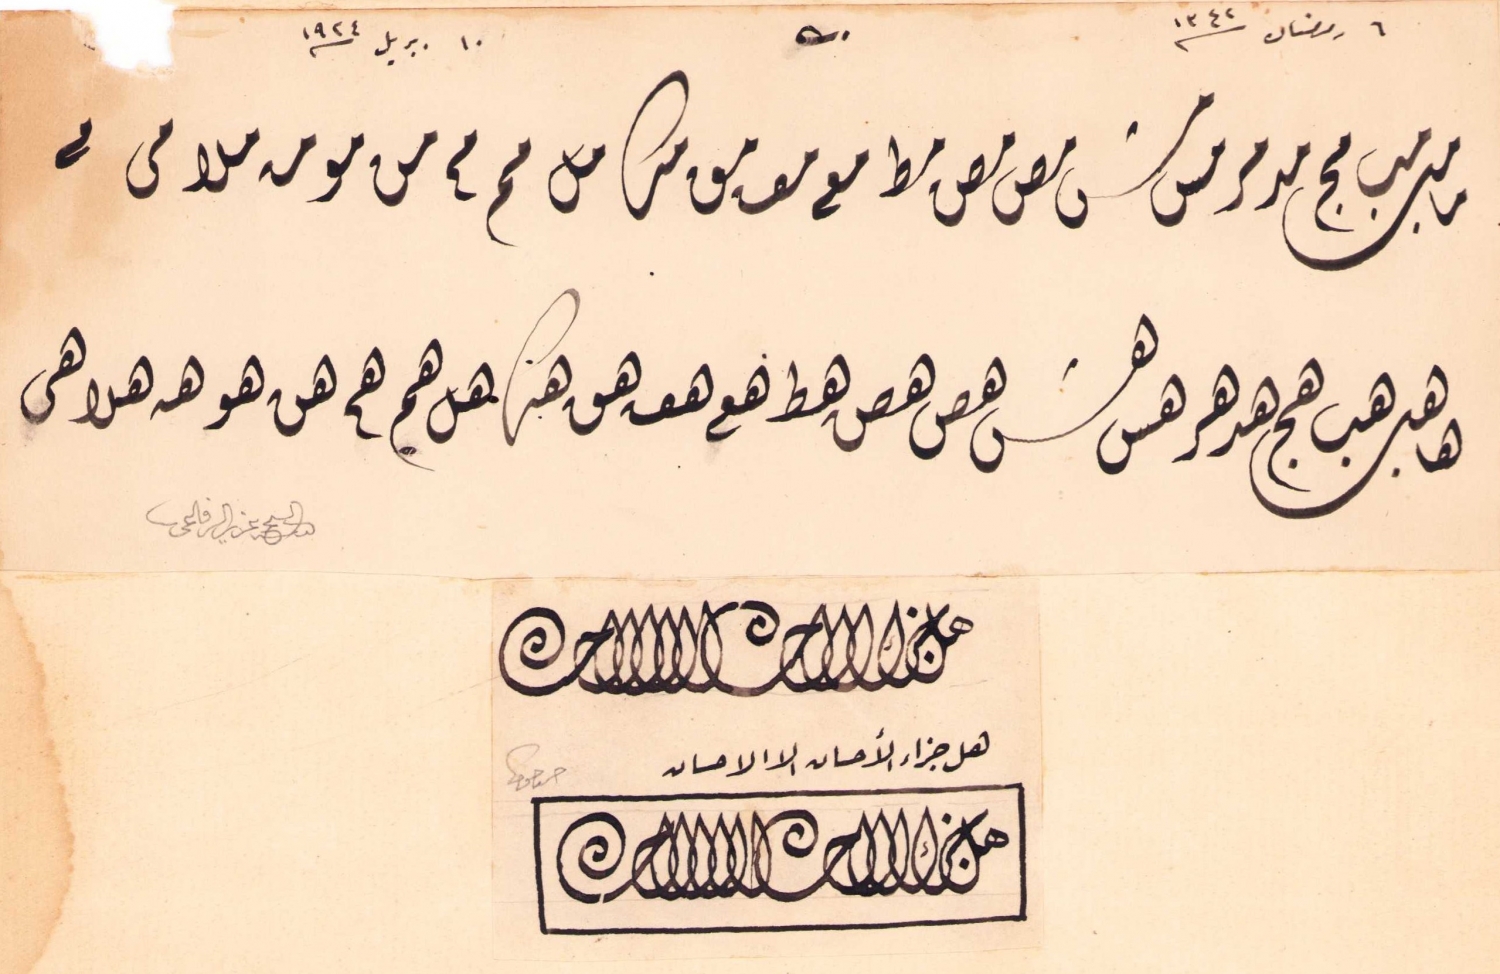 ٦ رمضان ١٣٤٢ ١٠ بريل ١٩٢٤
مب مب مج مد مر مس مش مص مص مط مع مف مق مك مل مم مم من مو مه ملا مى مے
ها هب هب هج هد هر هس هش هص هص هط هع هف هق هك هل هم هم هن هو هه هلا هى
هل جزاء الاحسان الا الاحسان
هل جزاء الأحسان الا الاحسان
هل جزاء الاحسان الا الاحسان